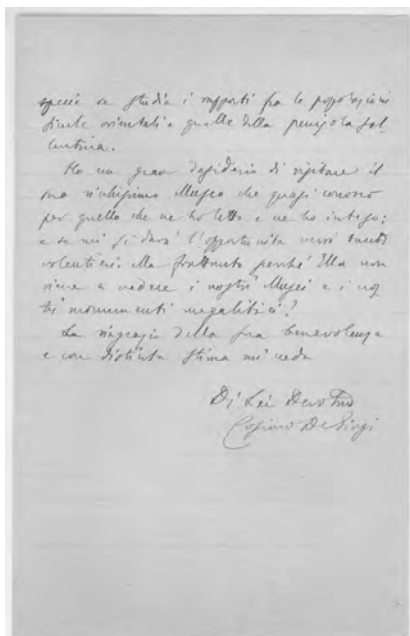 specie se studia i rapporti fra le popolazioni
sicule orientali e quelle della penisola sal-
lentina.
Ho un gran desiderio di visitare il
suo ricchissimo Museo che quasi conosco
per quello che ne ho letto e ne ho inteso;
e se mi si darà l'opportunità verrò tanto
volentieri. Ma frattanto perché Ella non
viene a vedere i nostri Musei e i nos
tri monumenti megalitici?
La ringrazio della sua benevolenza
e con distinta stima mi creda
Di Lei Devotmo
Cosimo De Giorgi